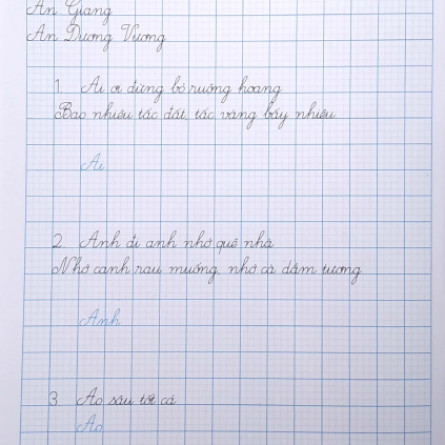 An Giang
An Dương Vương
1. Ai ơi đừng bỏ ruộng hoang
Bao nhiêu tấc đất, tấc vàng bấy nhiêu
Ai
2. Anh đi anh nhớ quê nhà
Nhớ canh rau muống, nhớ cà dầm tương
Anh
3. Ao sâu tốt cá
Ao